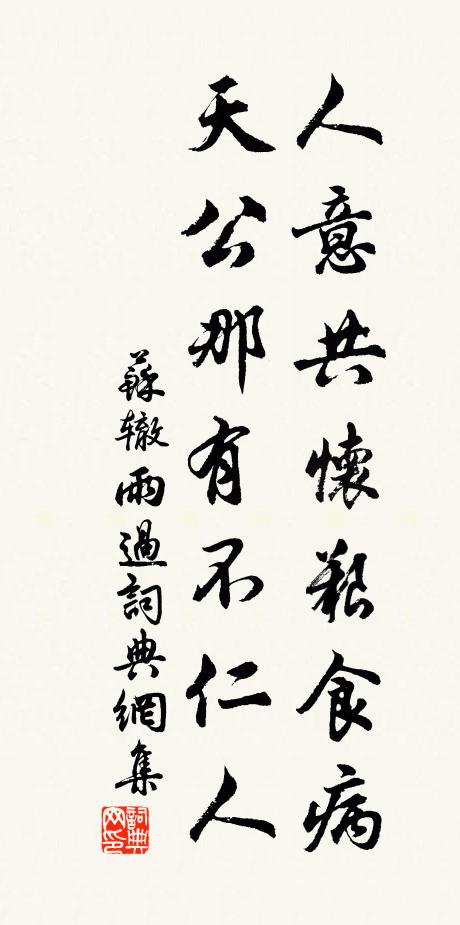 人意共懷艱食病
天公那有不仁人
蘇轍雨過詞典網集
詞典网印